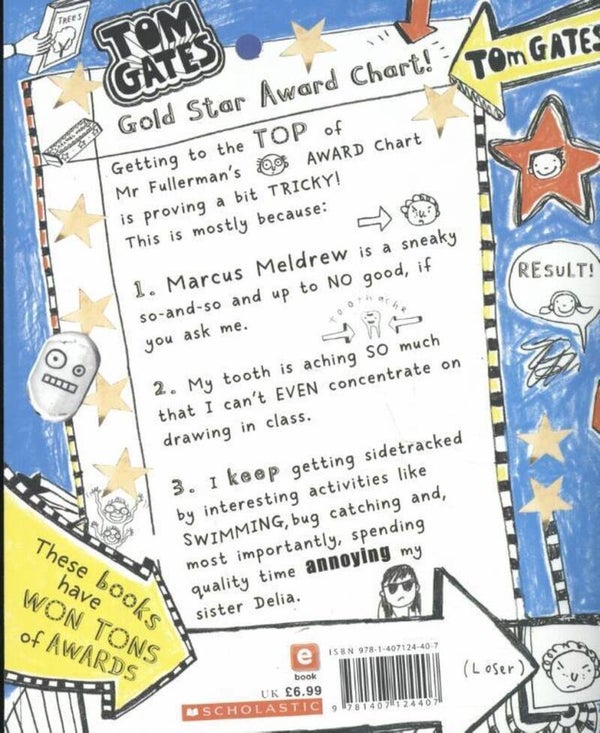 TREES
TOM
GATES
TOM GATES
Gold Star Award Chart!
Getting to the TOP of
Mr Fullerman's AWARD Chart
is proving a bit TRICKY!
This is mostly because:
1. Marcus Meldrew is a sneaky
so-and-so and up to NO good, if
you ask me.
Toothache
2. My tooth is aching SO much
that I can't EVEN concentrate on
drawing in class.
3. I keep getting sidetracked
by interesting activities like
SWIMMING, bug catching and,
most importantly, spending
quality time annoying my
sister Delia.
RESULT!
These books
have
WON TONS
of AWARDS
e
book
UK £6.99
SCHOLASTIC
ISBN 978-1-407124-40-7
9 781407 124407
(Loser)